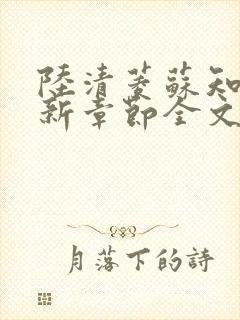 陸清蔆蘇知
新章節全文
月落下的詩